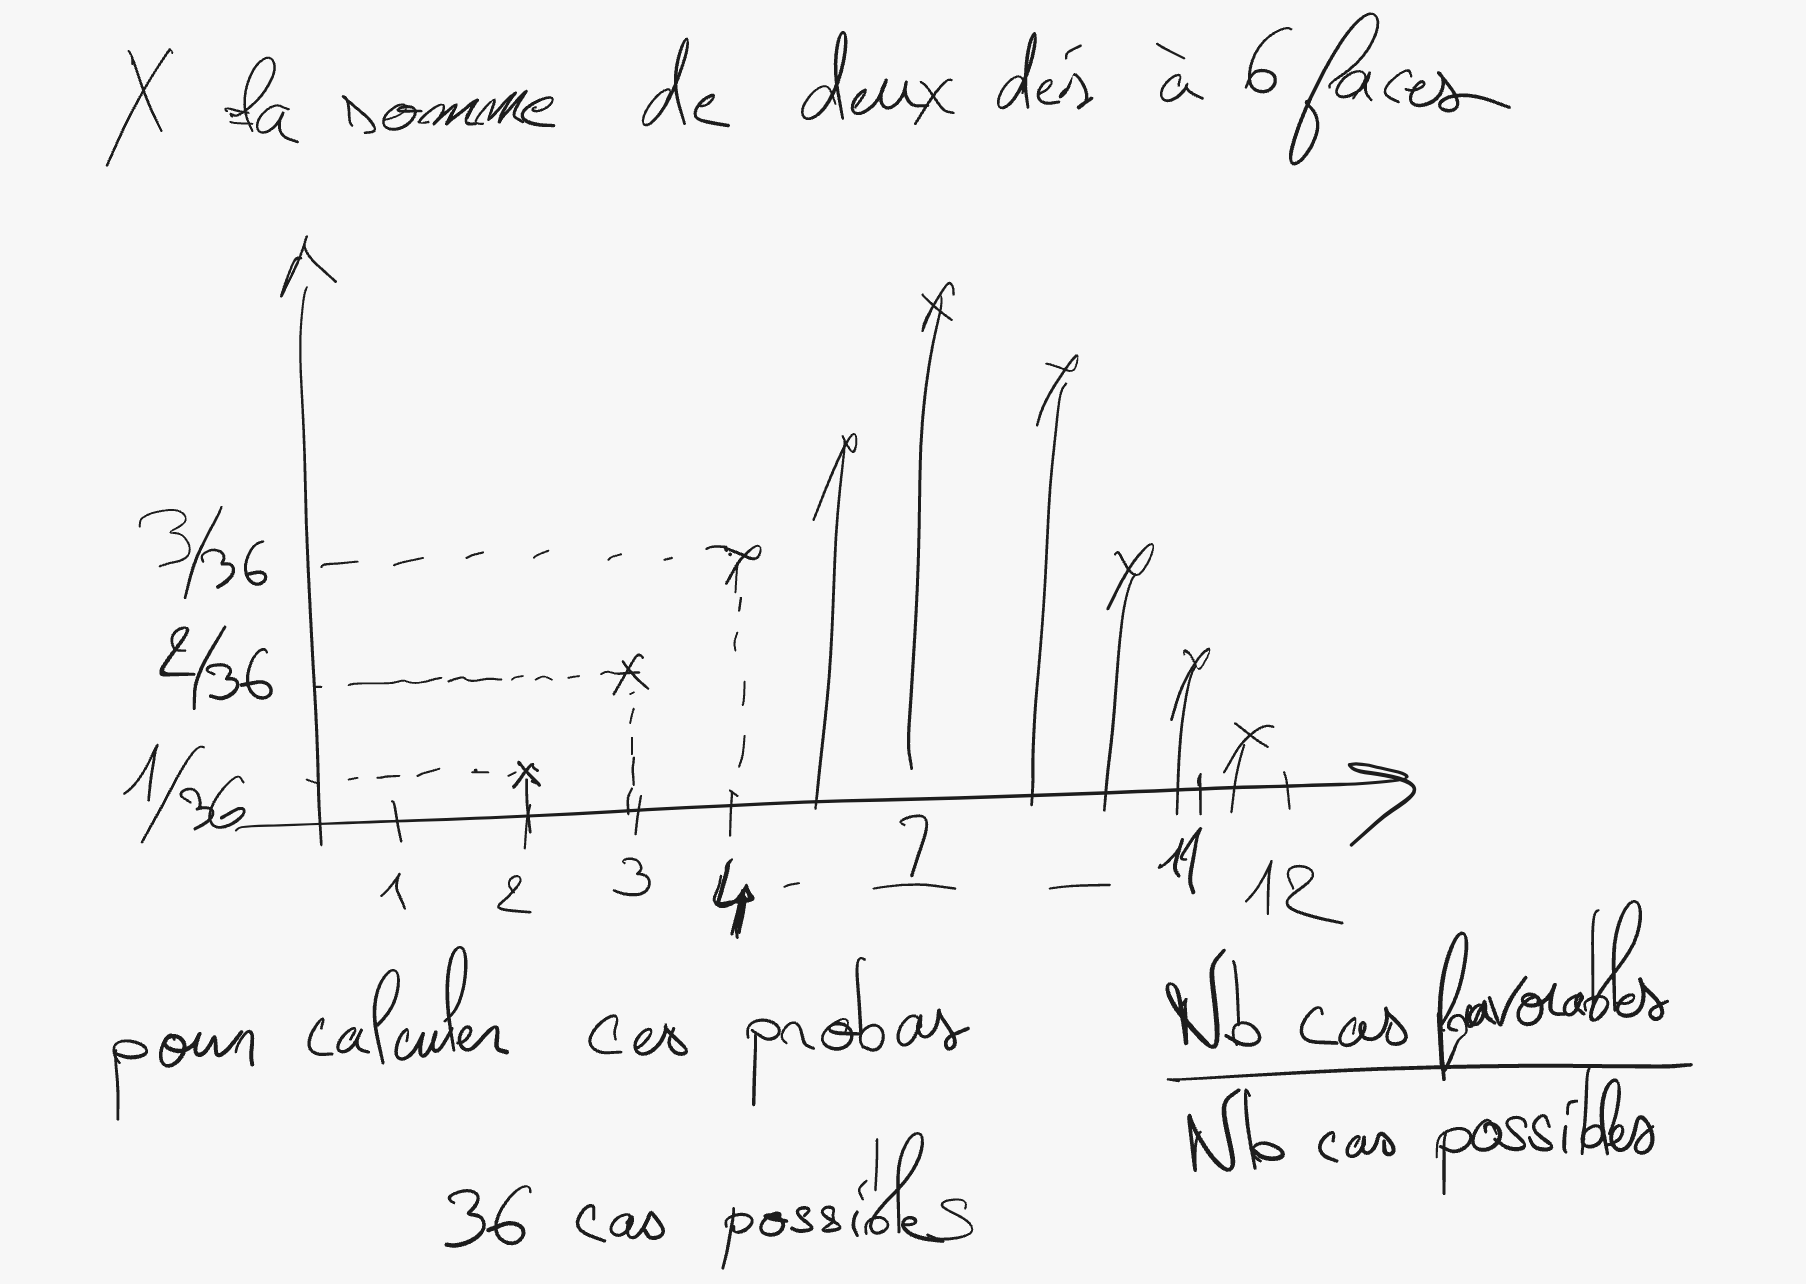 X la somme de deux dés à 6 faces
3/36
2/36
1/36
1 2 3 4 - 7 - 11 12
pour calculer ces probas
Nb cas favorables
Nb cas possibles
36 cas possibles